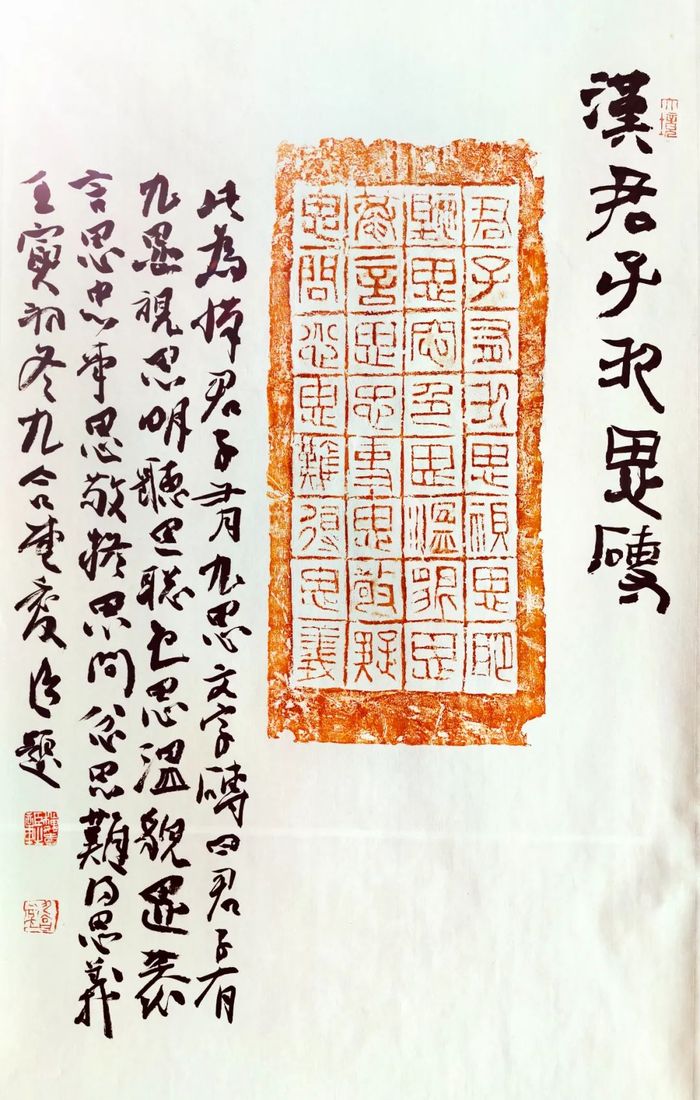 漢君子九思磚
君子有九思視思明
聽思聰色思溫貌思
恭言思忠事思敬疑
思問忿思難得思義
此為漢君子有九思文字磚曰君子有
九思視思明聽思聰色思溫貌思恭
言思忠事思敬疑思問忿思難得思義
壬寅初冬九合題